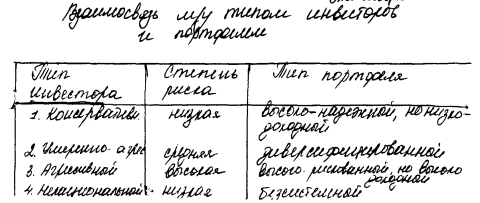 Взаимосвязь м/у типом инвесторов
и портфелем
Тип инвестора Степень риска Тип портфеля
1. Консерватив низкая высоко-надежной, но низко-
доходной
2. Умеренно-агрес средняя диверсифицированной
3. Агрессивной высокая высоко рискованной, но высоко
доходной
4. Нерациональной низкая безсистемной